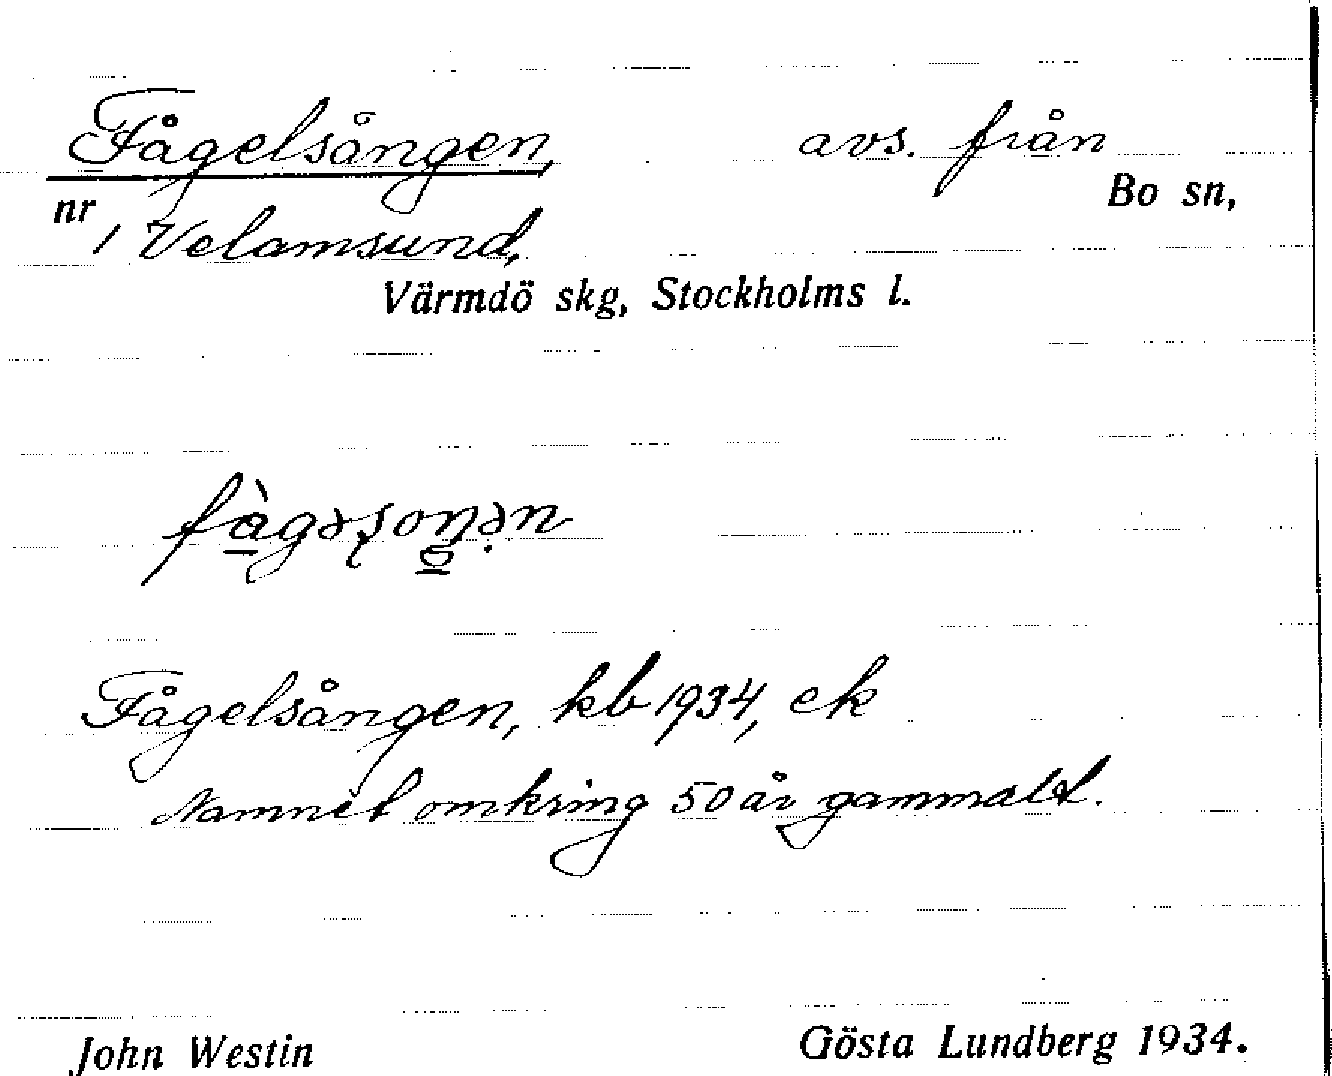 Fågelsången, avs. från
Bo sn,
nr 1 Velamsund,
Värmdö skg, Stockholms l.
Fågelsången, kb 1934, ek
Namnet omkring 50 år gammalt.
John Westin Gösta Lundberg 1934.